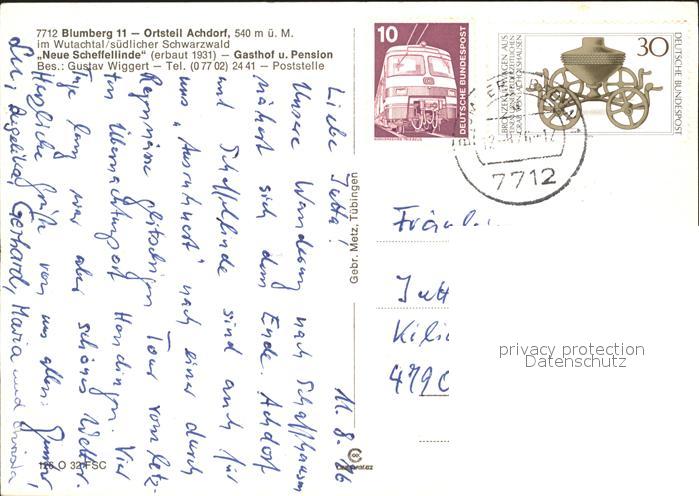 7712 Blumberg 11 — Ortsteil Achdorf, 540 m ü. M.
im Wutachtal/südlicher Schwarzwald
„Neue Scheffellinde" (erbaut 1931) — Gasthof u. Pension
Bes.: Gustav Wiggert — Tel. (0 77 02) 24 41 — Poststelle
10
DEUTSCHE BUNDESPOST
BRONZEKULTWAGEN AUS
30
DEUTSCHE BUNDESPOST
7712
11.8.76
Liebe Jutta!
Unsere Wanderung nach Schaffhausen
nähert sich dem Ende. Achdorf
und Scheffellinde sind auch für
uns „Ausruhnest" nach einer durch
Regennässe glitschigen Tour vom letz-
ten Übernachtungsort Hondingen. Vier
Tage lang war aber schönes Wetter.
Herzliche Grüße von uns allen:
Gerhard, Maria und
Gebr. Metz, Tübingen
Fräulein
Jutt
Kili
479
privacy protection
Datenschutz
126 O 32 FSC